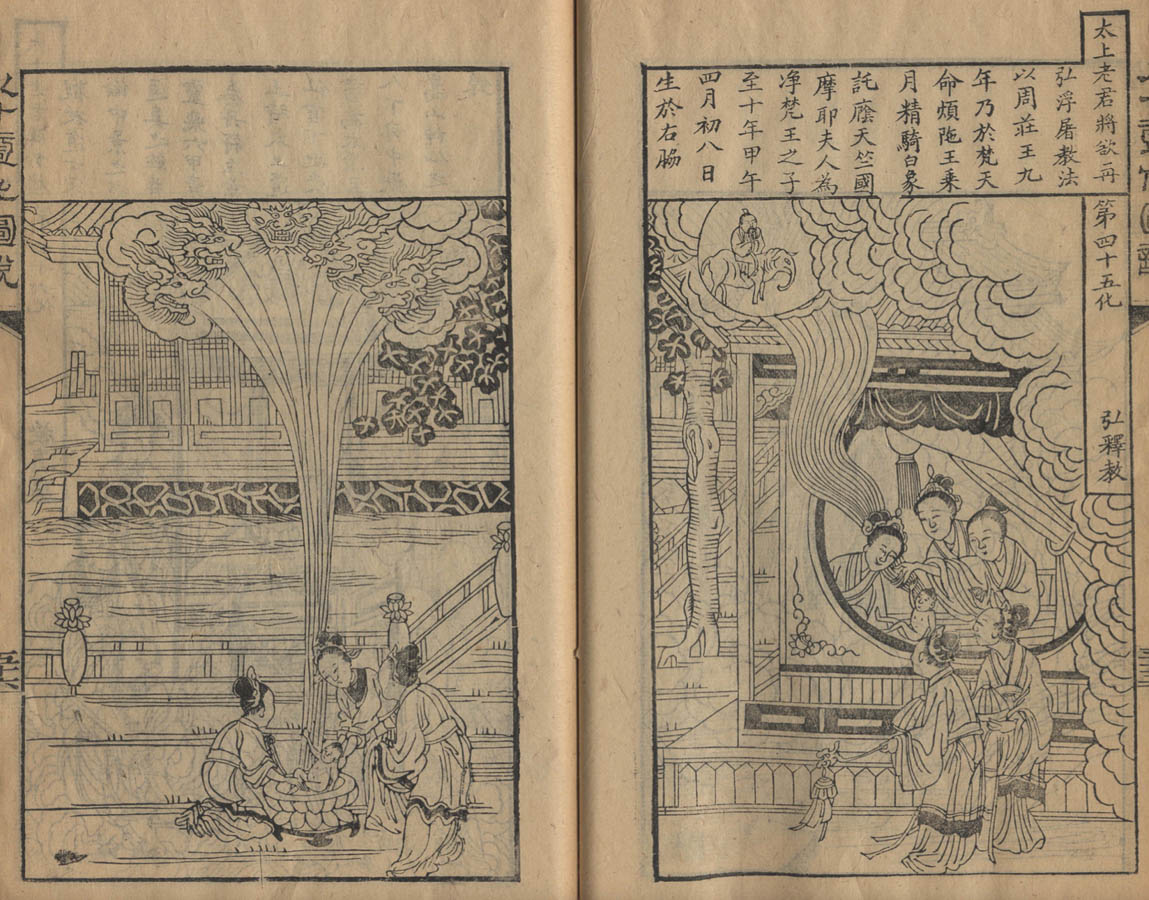 太上老君將欲再
弘浮屠教法
以周莊王九
年乃於梵天
命煩陁王乗
月精騎白象
託廕天竺國
摩耶夫人為
净梵王之子
至十年甲午
四月初八日
生於右脇
第四十五化
弘釋教
八十一化圖說